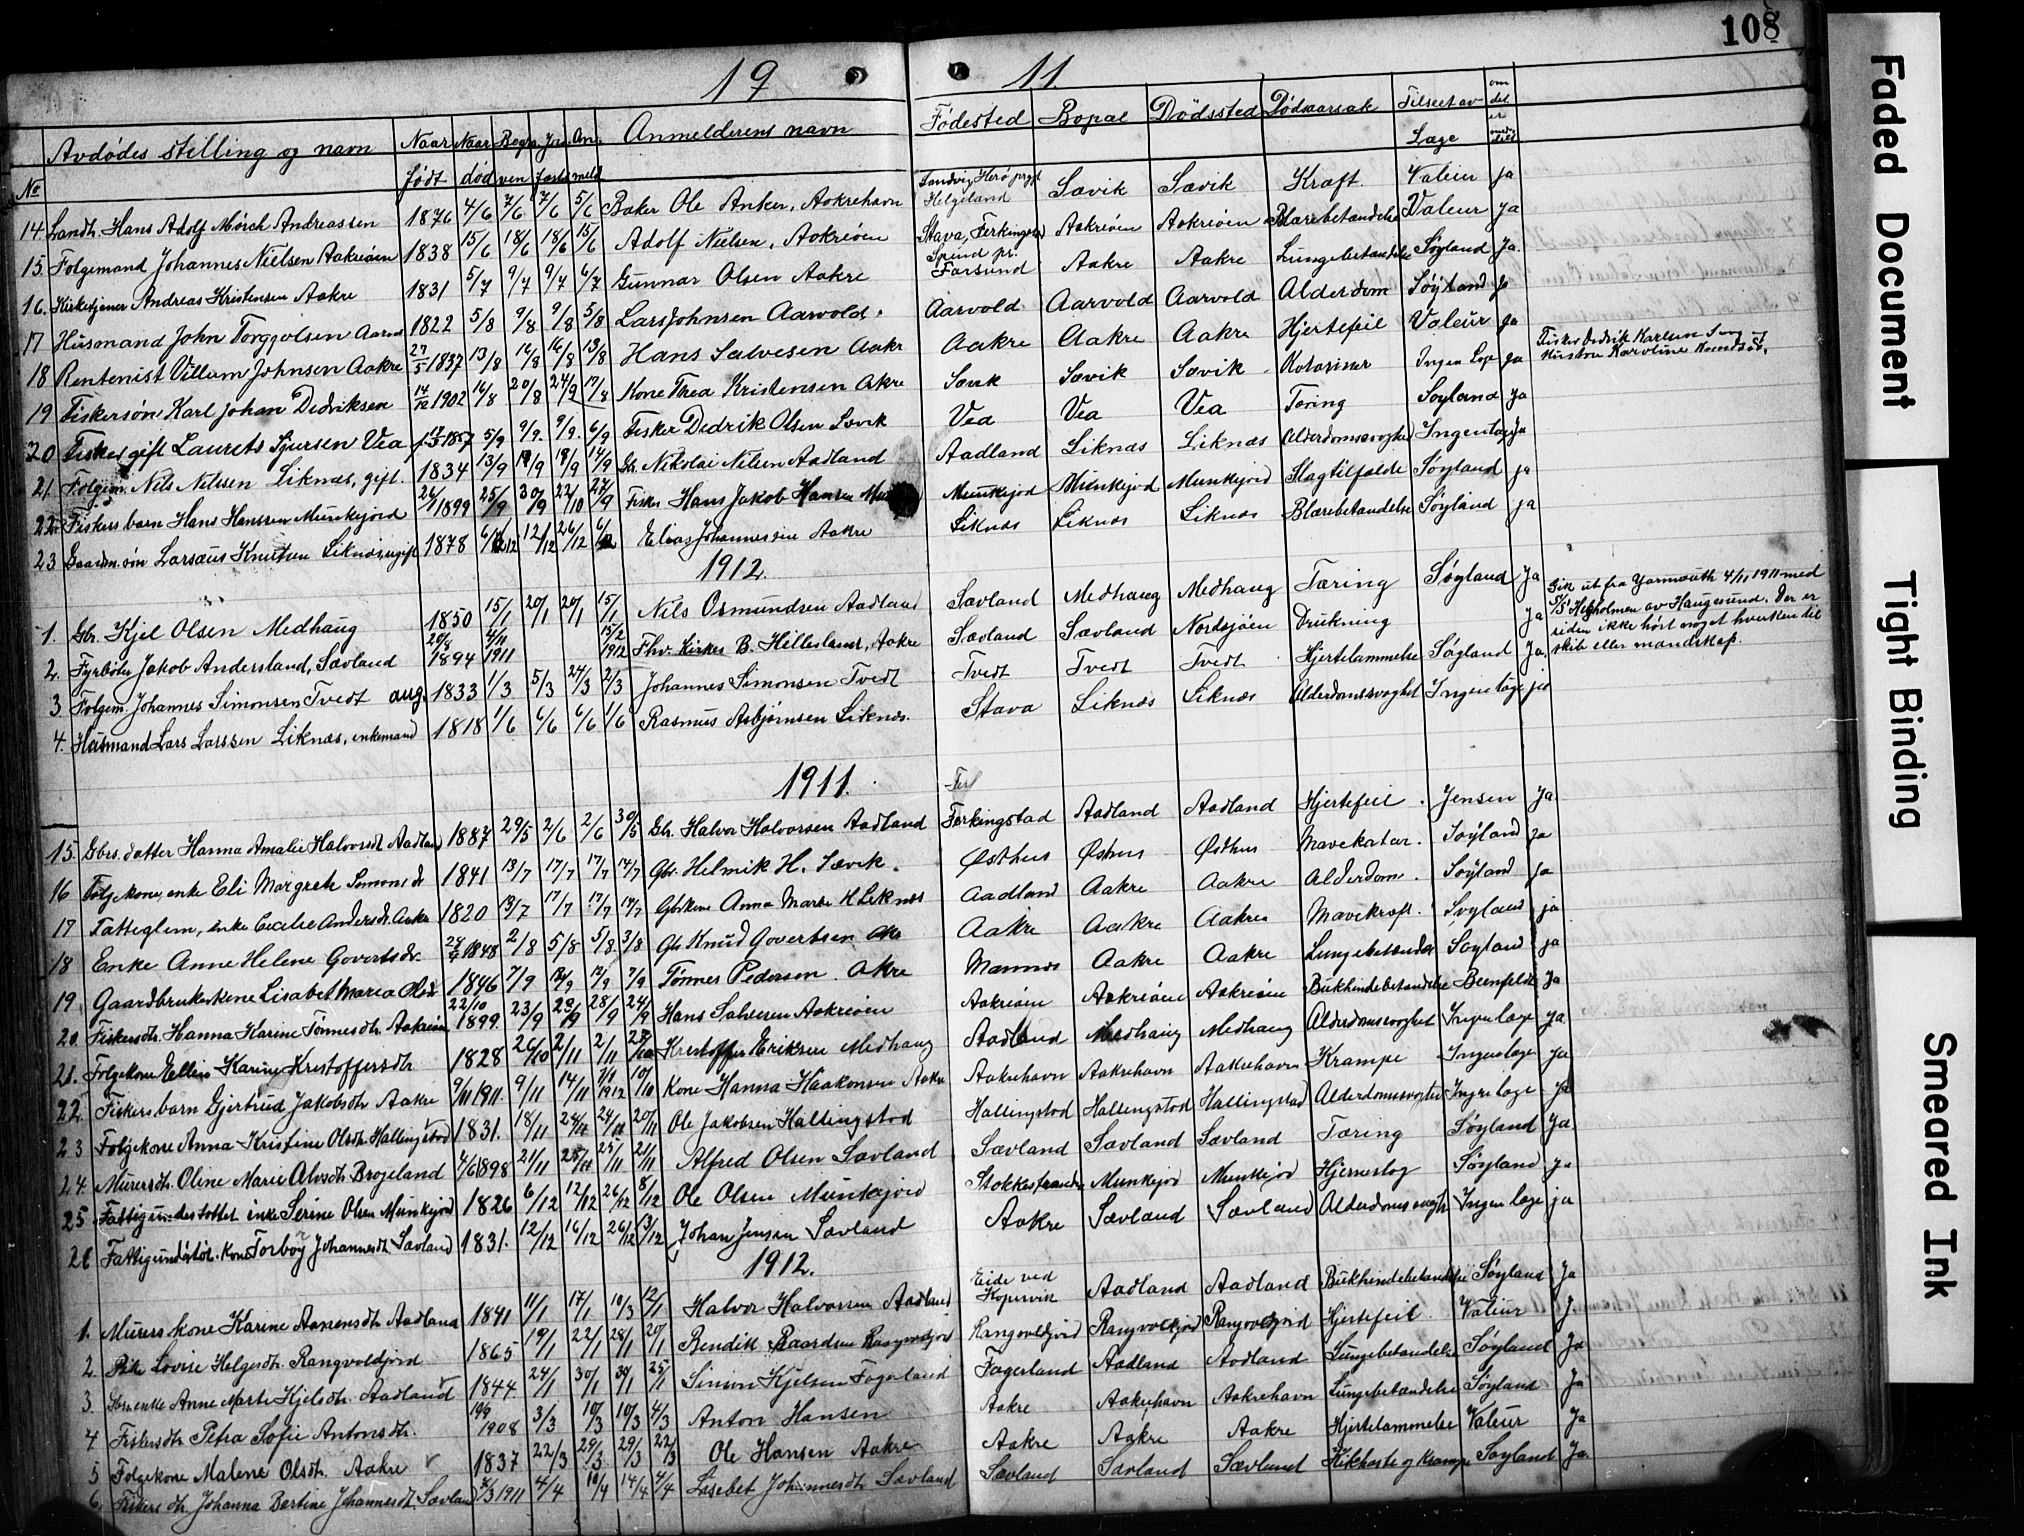 108
19 11.
No Avdødes stilling og navn Naar født Naar død Begra ven Jord fæstet An meld Anmelderens navn Fødested Bopæl Dödssted Dödsaarsak Tilseet av Læge om det er anm. til
14. Landh. Hans Adolf Mörch Andreassen 1876 4/6 7/6 7/6 5/6 Baker Ole Anker, Aakrehavn Sandvig Herø prgj Helgeland Sævik Sævik Kræft. Valeur ja
15. Følgemand Johannes Nielsen Aakreiøen 1838 15/6 18/6 18/6 15/6 Adolf Nielsen, Aakreiøen Stava, Ferkingstad Aakreiøen Aakreiøen Blærebetændelse Valeur ja
16. Kirketjener Andreas Kristensen Aakre 1831 5/7 9/7 9/7 6/7 Gunnar Olsen Aakre Spind pr. Farsund Aakre Aakre Lungebetændelse Søyland Ja.
17 Husmand John Torggolsen Aarvold 1822 5/8 9/8 9/8 5/8 Lars Johnsen Aarvold. Aarvold Aarvold Aarvold Alderdom Søyland Ja
18 Rentenist Villum Johnsen Aakre 27/5 1837 13/8 16/8 16/8 13/8 Hans Salvesen Aakr Aakre Aakre Aakre Hjertefeil Valeur ja
19 Fiskersøn Karl Johan Dedriksen 14/12 1902 16/8 20/8 24/9 17/8 Kone Thea Kristensen Akre Sævik Sævik Sævik Ingen Læge ja Fisker Dedrik Karlsen Sævig og Hustru Karoline Knudsd.
20 Fisker gift Laurets Sjursen Vea 1857 5/9 9/9. 9/9. 6/9 Fisker Dedrik Olsen Sævik Vea Vea Vea Tæring Søyland ja
21. Følgem. Nils Nilssen Liknæs, gift. 1834 13/9 18/9 18/9 14/9 Gb. Nikolai Nilsen Aadland Aadland Liknæs Liknæs Alderdomssvaghet Ingen læge ja
22. Fiskers barn Hans Hanssen Munkejord 26/1 1899 25/9 30/9 22/10 27/9 Fisker Hans Jakob Hansen Munkejord Munkejord Munkejord Slagtilfælde Søyland ja
23 Gaardm. søn Larsæus Knutsen Liknæs, ugift 1878 12/12 26/12 Elias Johannessen Aakre Liknæs Liknæs Liknæs Blærebetændelse Søyland ja
1912.
1. Gbr. Kjel Olsen Medhaug 1850 15/1 20/1 20/1 15/1 Nils Osmundsen Aadland Sævland Medhaug Medhaug Tæring Søyland Ja
2. Fyrbøter Jakob Andersland, Sævland 20/4 1894 4/11 1911 15/2 1912 Fhv. Kirkes B. Hillesland, Aakre Sævland Sævland Nordsjøen Drukning Ja Gik ut fra Yarmouth 4/11 1911 med S/S Helgholmen av Haugesund. Der er siden ikke hørt noget hverken til skib eller mandskap.
3 Følgem. Johannes Simonsen Tvedt aug. 1833 1/3 5/3 24/3 2/3 Johannes Simonsen Tvedt Tvedt Tvedt Tvedt Hjertelammelse Søyland Ja.
4. Husmand Lars Larssen Liknæs, enkemand 1818 1/6 6/6 6/6 1/6 Rasmus Asbjørnsen Liknæs. Stava Liknæs Liknæs Alderdomssvaghet Ingen læge ja
1911.
15. Gbrs. datter Hanna Amalie Halvorsdt. Aadland 1887 29/5 2/6 2/6 30/5 Gbr. Halvor Halvorsen Aadland Ferkingstad Aadland Aadland Hjertefeil. Jensen ja.
16 Følgekone, enke Eli Margrete Simonsdt 1841 13/7 17/7 17/7 14/7 Gbr. Helmik H. Sævik. Østhus Østhus Østhus Mavekatar. Søyland ja
17 Fattiglem, enke Cecilie Andersdt. Aakre 1820 13/7 17/7 17/7 14/7 Gbrkone Anna Marte H Liknæs Aadland Aakre Aakre Alderdom. Søyland ja
18 Enke Anne Helene Govertsdt. 1848 2/8 5/8 5/8 3/8 Gb Knud Govertsen Aakre Aakre Aakre Mavekræft. Søyland ja
19. Gaardbrukerkone Lisabet Maria Olsd 1846 7/9 12/9 12/9 7/9 Tønnes Pedersen. Akre Mannes Aakre Aakre Lungebetændelse Søyland ja
20. Fiskersdt. Hanna Karine Tønnesdt. Aakreiøen 22/10 1899. 23/9 28/9 28/9 24/9 Hans Salvesen Aakreiøen Aakreiøen Aakreiøen Aakreiøen Bukhindebetændelse Beenfeldt ja
21. Følgekone Ellen Karine Kristoffersdt. 1828 26/10 2/11 2/11 27/10 Kristoffer Eriksen Medhaug Aadland Medhaug Medhaug Alderdomssvaghet Ingen læge ja
22. Fiskers barn Gjertrud Jakobsdt. Aakre 9/11 1911. 9/11 14/11 10/11 Kone Hanna Haakonsen Aakre Aakrehavn Aakrehavn Aakrehavn Krampe Ingen læge ja
23 Følgekone Anna Kristine Olsdt. Hallingstad 1831. 18/11 24/11 24/11 20/11 Ole Jakobsen Hallingstad Hallingstad Hallingstad Hallingstad Alderdomssvaghet Ingen læge ja
24. Murersdt. Oline Marie Alvsdt. Brojeland 4/6 1898 21/11 25/11 25/11 21/11 Alfred Olsen Sævland Sævland Sævland Sævland Tæring Søyland Ja
25 Fattigunderstøttet enke Serine Olsen Munkejord 1826 6/12 12/12 26/12 8/12 Ole Olsen Munkejord Stokkastrand Munkejord Munkejord Hjerneslag Søyland ja
26 Fattigunderstøt. kone Torbør Johannesdt. Sævland 1831. 12/12 16/12 26/12 13/12 Johan Jensen Sævland Aakre Sævland Sævland Alderdomssvaghet Ingen læge ja
1912.
1. Murers kone Karine Aanensdt. Aadland 1841 11/1 17/1 10/3 12/1 Halvor Halvorsen Aadland Eide ved Kopervik Aadland Aadland Bukhindebetændelse Søyland Ja
2. Pike Lovise Helgesdt. Rangvoldjord 1865 19/1 22/1 28/1 20/1 Bendik Baardsen Rangvoldjord Rangvoldjord Rangvoldjord Rangvoldjord Hjertefeil. Valeur J.
3. Gbr. enke Anne Marte Kjelsdt. Aadland 1844. 24/1 30/1 30/1 25/1 Simon Kjelsen Fagerland Fagerland Aadland Aadland Lungebetændelse Søyland Ja
4 Fiskersdt. Petra Sofie Antonsdt. 1908 3/3 10/3 10/3 4/3 Anton Hansen Aakre Aakrehavn Aakrehavn Lungebetændelse Søyland Ja
5 Følgekone Malene Olsdt. Aakre 1837 22/3 29/3 29/3 22/3 Ole Hansen Aakre Aakre Aakre Aakre Hjertelammelse Valeur Ja
6. Fiskers dt. Johanna Bertine Johannesdt. Sævland 1911 4/4 10/4 14/4 4/4 Lisebet Johannesdt Sævland Sævland Sævland Sævland Kikhoste og Krampe Søyland Ja.
Faded Document
Tight Binding
Smeared Ink